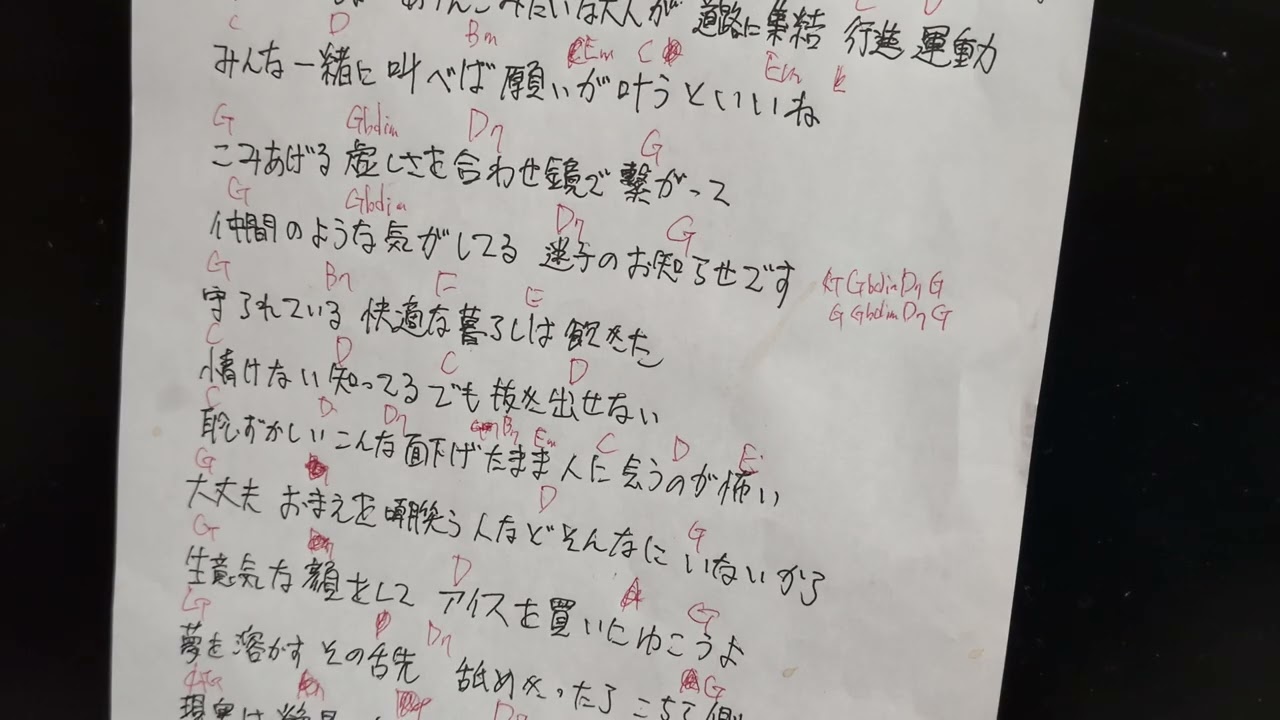 みたいな大人が 道路に集結 行進 運動
C D Bm Em C Em
みんな一緒に叫べば 願いが叶うといいね
G Gbdim D7 G
こみあげる 虚しさを 合わせ鏡で 繋がって
G Gbdim D7 G
仲間のような気がしてる 迷子のお知らせです G Gbdim D7 G
G B7 E E G Gbdim D7 G
守られている 快適な暮らしは飽きた
C D C D
情けない 知ってる でも 抜き出せない
C D D7 B7 Em C D E
恥ずかしい こんな 面下げたまま 人に会うのが怖い
G D G
大丈夫 おまえを嘲笑う人など そんなに いないから
G D G
生意気な顔をして アイスを買いにゆこうよ
G D7 G
夢を溶かす その舌先 舐めきったら こちら側
現実は